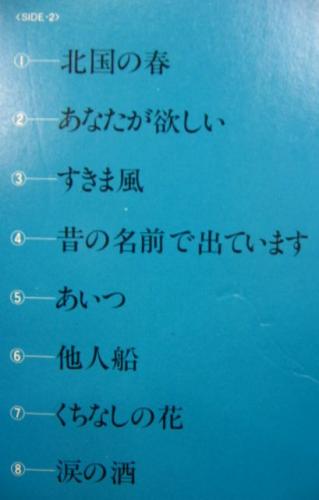 〈SIDE・2〉
①―北国の春
②―あなたが欲しい
③―すきま風
④―昔の名前で出ています
⑤―あいつ
⑥―他人船
⑦―くちなしの花
⑧―涙の酒